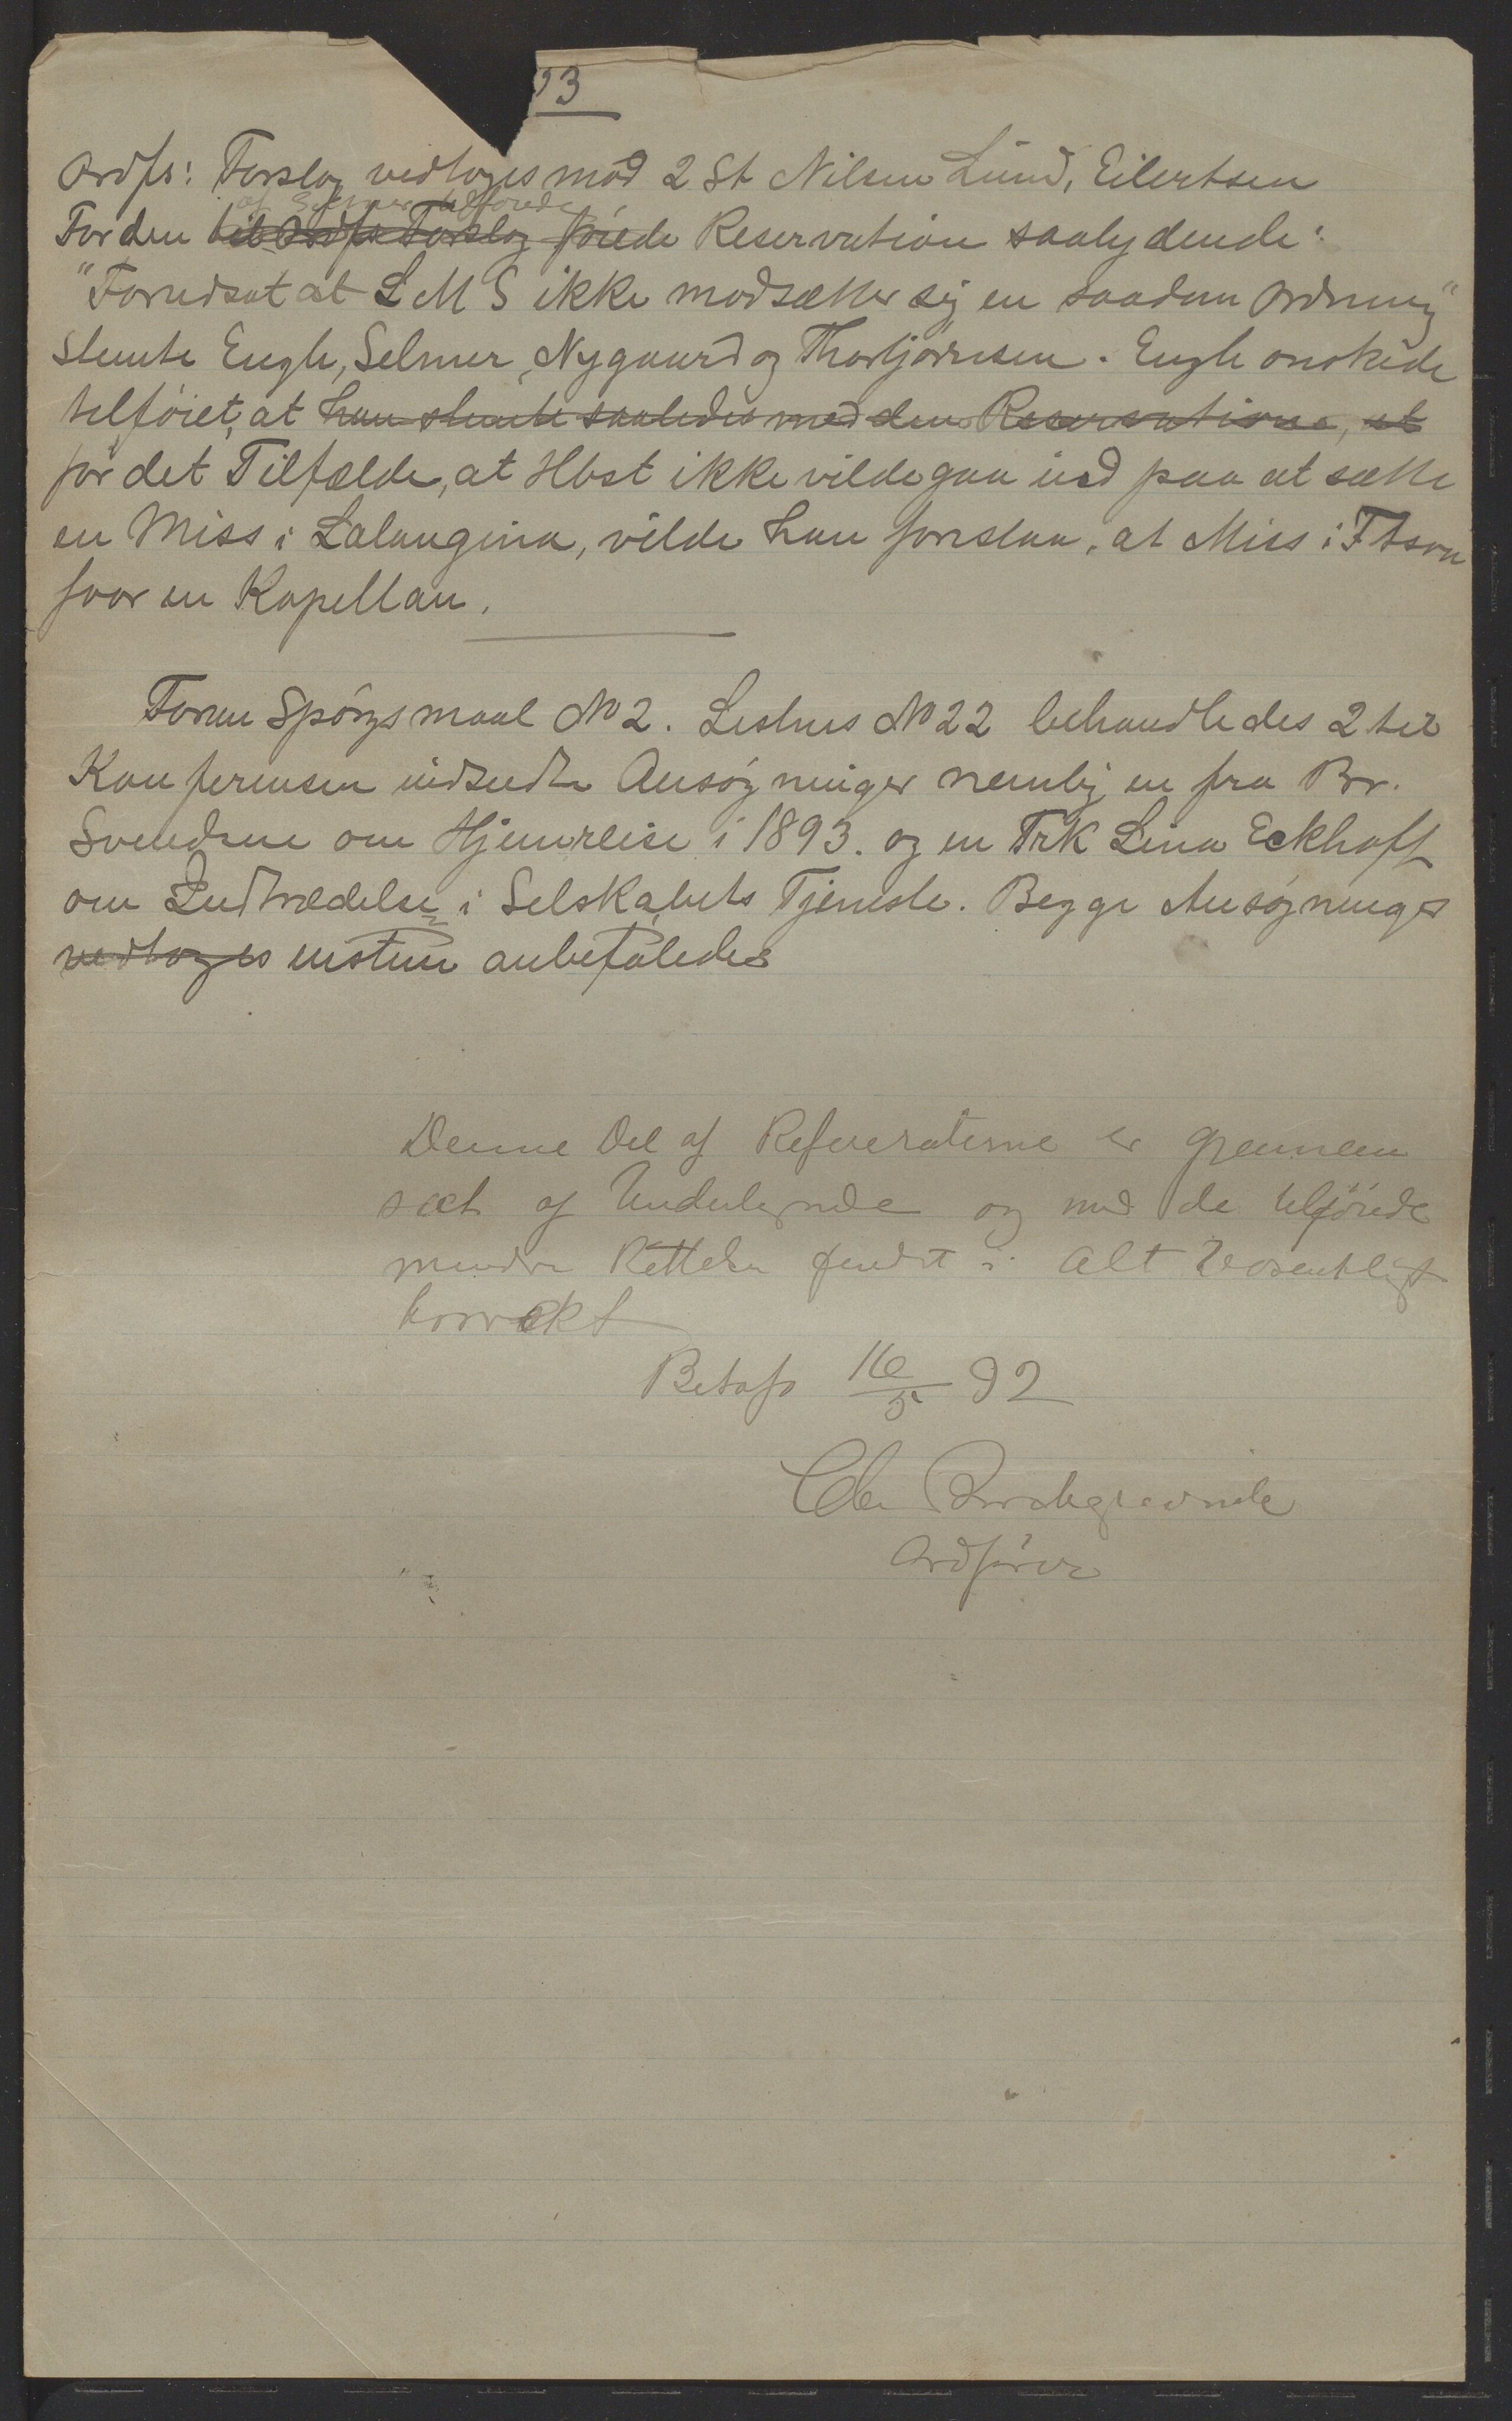 93
Ordfs: Forslag vedtoges mod 2 St Nilsen Lund, Eilertsen
af Selmer tilföiede
For den til Ordfs Forslag föiede Reservation saalydende:
"Forudsat at L M S ikke modsætter sig en saadan Ordning"
stemte Engh, Selmer, Nygaard og Thorbjørnsen. Engh onskede
tilföiet, at han stemte saaledes med den Reservation, at
for det Tilfælde, at Hbst ikke vilde gaa ind paa at sætte
en Miss i Lalangina, vilde han foreslaa, at Miss i Ftsoa
faar en Kapellan.
Foran Spörgsmaal No 2. Leshus No 22 behandledes 2 til
Konferensen indsendte Ansøgninger nemlig en fra Br.
Svendsen om Hjemreise i 1893. og en Frk Lina Eckhoff
om Indtrædelse i Selskabets Tjeneste. Begge Ansøgninger
vedtoges enstem anbefaledes
Denne Del af Refereraterne er gjennem
set af Undertegnede og med de tilföiede
mindre Rettelser fundet i Alt Væsentligt
korrekt
Betafo 16/5 92
Chr Borchgrevink
Ordförer